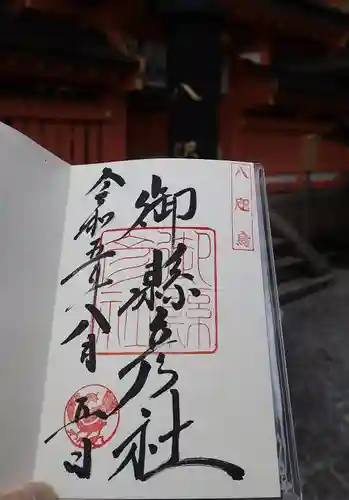 八咫烏
御縣彦社
御縣
彦社
令和五年八月五日